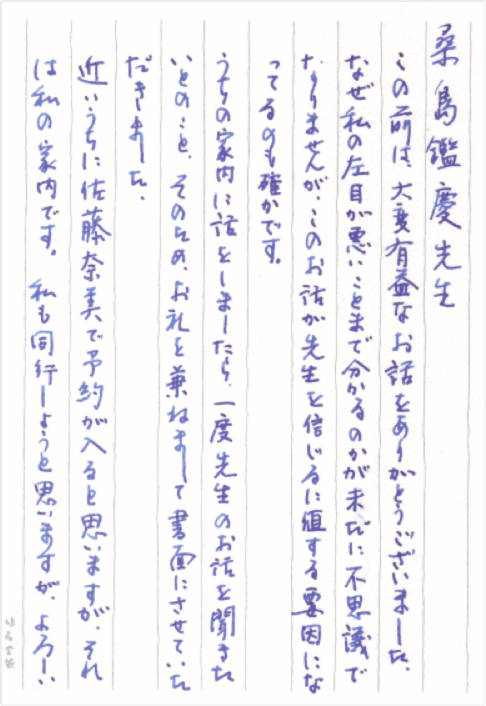 桑島鑑慶先生
この前は、大変有益なお話をありがとうございました。
なぜ私の左目が悪いことまで分かるのかが未だに不思議で
なりませんが、このお話が先生を信じるに値する要因にな
ってるのも確かです。
うちの家内に話をしましたら、一度先生のお話を聞きた
いとのこと、そのため、お礼を兼ねまして書面にさせていた
だきました。
近いうちに佐藤奈美で予約が入ると思いますが、それ
は私の家内です。 私も同行しようと思いますが、よろしい